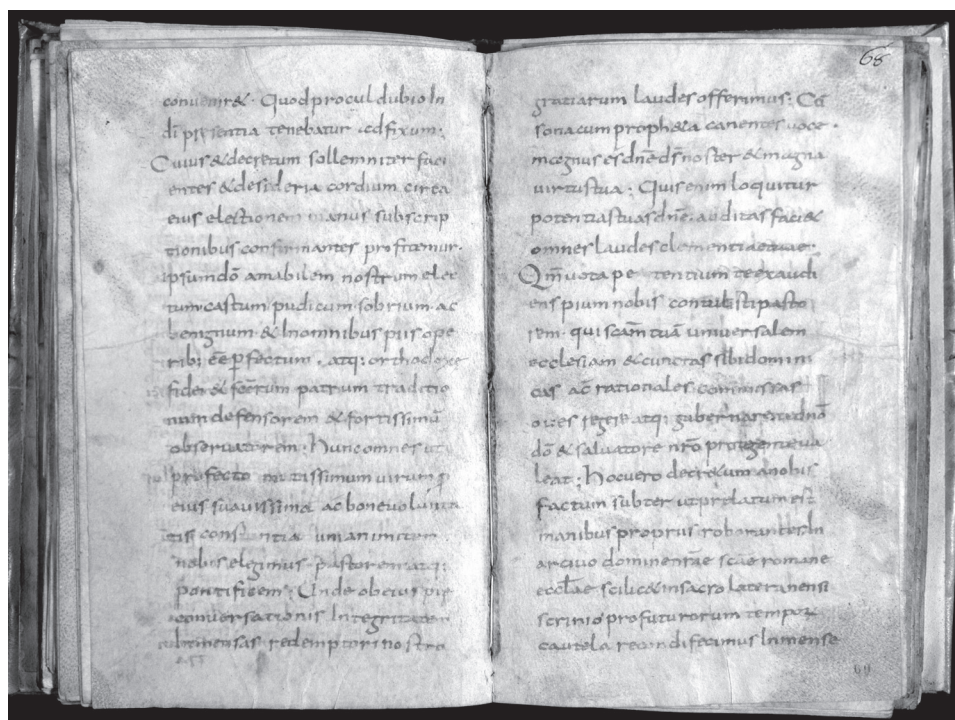 conuenire&. Quod procul dubio In
di presentia tenebatur adfixum.
Cuius & decretum sollemniter faci
entes & desideria cordium circa
eius electionem manus subscrip
tionibus confirmantes profitemur.
ipsum dō amabilem nostrum elec
tum castum pudicum sobrium ac
benignum & Inomnibus piis ope
rib; eē pfectum. atq; orthodoxe
fidei & scōrum patrum traditio
num defensorem & fortissimū
obseruatorem. Hunc omnes
profecto mitissimum uirum p
eius suauissima ac beneuolentia
constantia unanimiter
nobis elegimus pastorem atq;
pontificem; Unde ob eius pie
conuersationis Integritatem
Inmensas redemptori nostro
68
gratiarum laudes offerimus; Cū
sona cum proph&a canentes uoce.
magnus es dnē ds noster & magna
uirtus tua; Quis enim loquitur
potentias tuas dnē. auditas faci&
omnes laudes clementiae tuae.
Qm̄ uota pe tentium te exaudi
ens pium nobis contulisti pasto
rem. qui scām tuā uniuersalem
ecclesiam & cunctas sibi domini
cas ac rationales commissas
oues reger& atq; gubernare
dō & saluatore nrō protegente ua
leat; Hoc uero decr&um a nobis
factum subter ut prelatum est
manibus propriis roborantes In
arciuo dominenrae scae romane
ecclae scilic& insacro lateranensi
scrinio pro futurorum tempor
cautela recondi fecimus Inmense